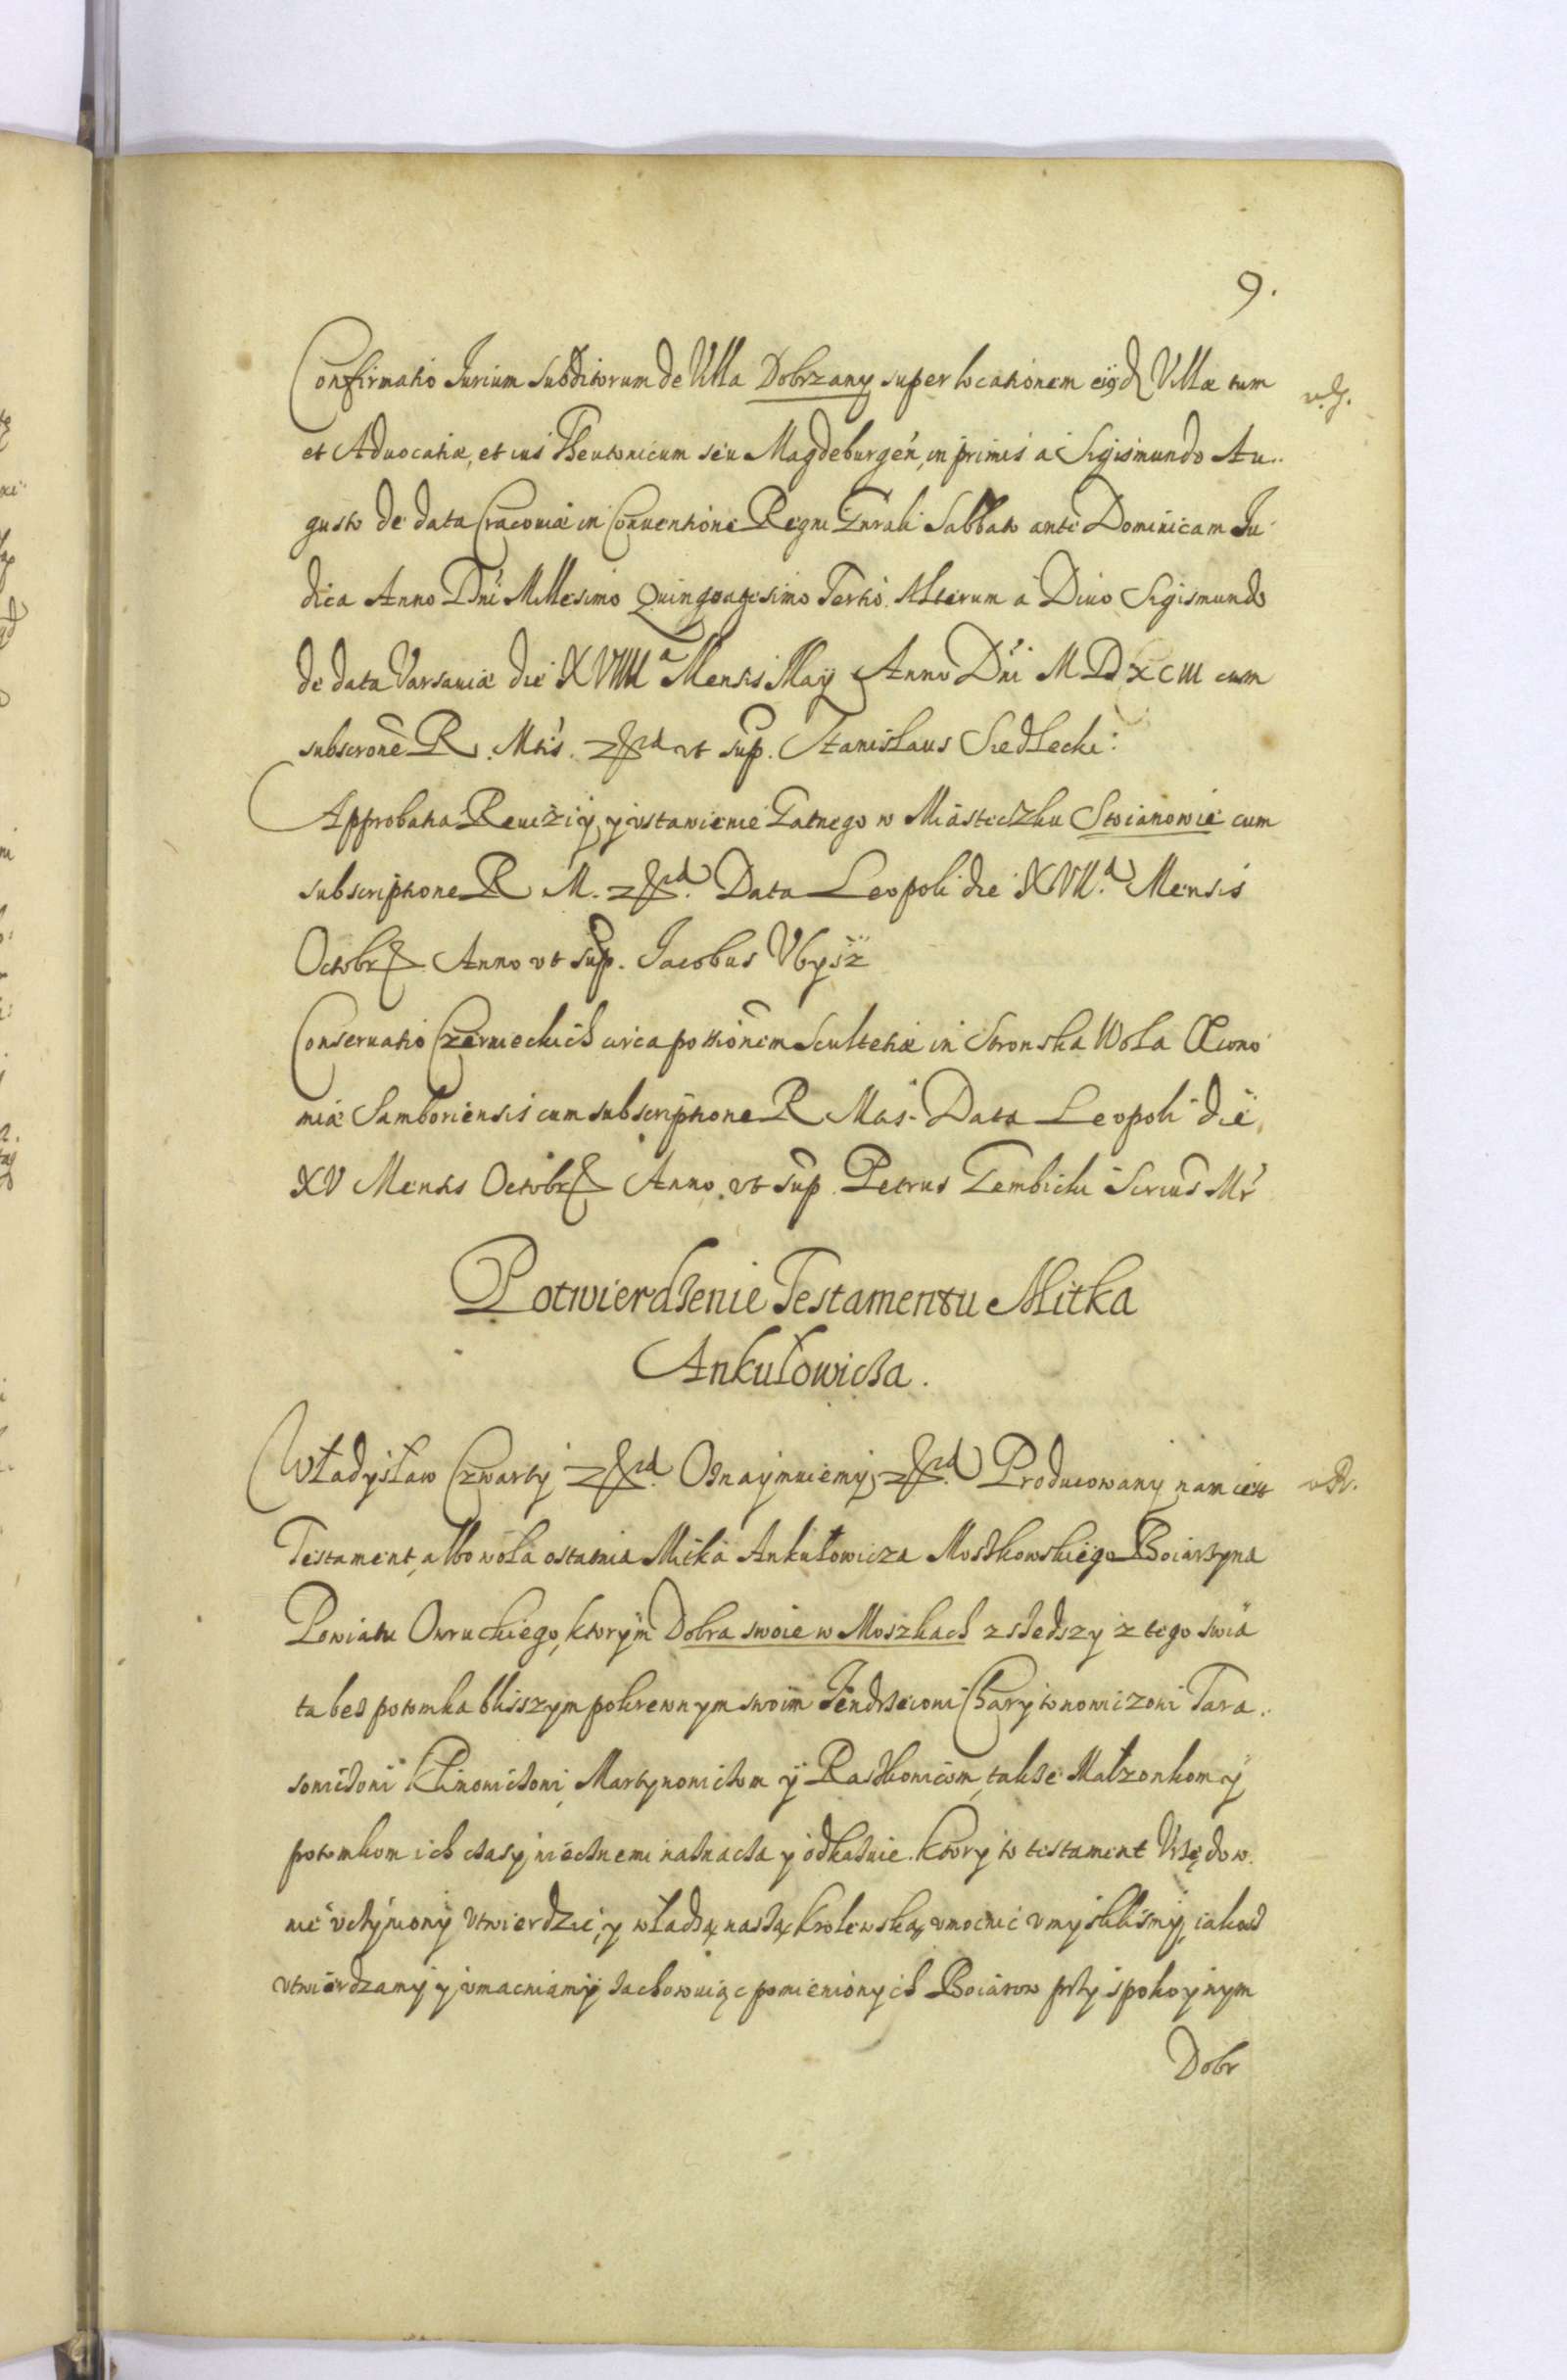 9.
Confirmatio Jurium subditorum de Villa Dobrzany super locationem eiusd Villæ tum
v. G.
et Aduocatiæ, et ius Theutonicum seu Magdeburgeń, in primis a Sigismundo Au..
gusto de data Cracouiæ in Conuentione Regni Gnrali Sabbato ante Dominicam Ju
dica Anno Dni Millesimo Quingvagesimo Tertio. Alterum a Diuo Sigismundo
de data Varsauiæ die XVIIII a Mensis May Anno Dńi MDXCIII cum
subscrone R. Mtis. ut sup. Stanislaus Siedlecki:
Approbatia Reuiziy, y ustawienie Targnego w Miasteczku Stoianowie cum
subscriptione R M. Data Leopoli die XVII.a Mensis
Octobr Anno ut sup. Jacobus Ubysz
Conseruatio Czernieckich circa portionem Scultetiæ in Stronska Wola Œcono
miæ Samboriensis cum subscriptione R Mas. Data Leopoli die
XV Mensis Octobr Anno ut sup. Petrus Gembicki Mr
Potwierdzenie Testamentu Mitka
Ankułowicza.
Władysław Czwarty Oznaymuiemy, Producowany nam iest
v R.
Testament, albo wola ostatnia Mitka Ankułowicza Moszkowskiego Boiarzyna
Powiatu Owruckiego, ktorym Dobra swoie w Moszkach zszedszy z tego swia
ta bez potomka bliszym pokrewnym swoim Jendrzeiowi Charytonowiczowi Tara..
sowiczowi Klimowiczowi, Martynowiczom y Raszkowiczom, takze Małzonkom y
potomkom ich czasy wiecznemi naznacza y odkazuie. ktory to testament Urzędow.
nie uczyniony utwierdzic, y władzą naszą krolewską umocnic umyslilismy, iakosz
utwierdzamy y umacniamy zachowuiąc pomienionych Boiarow przy spokoynym
Dobr